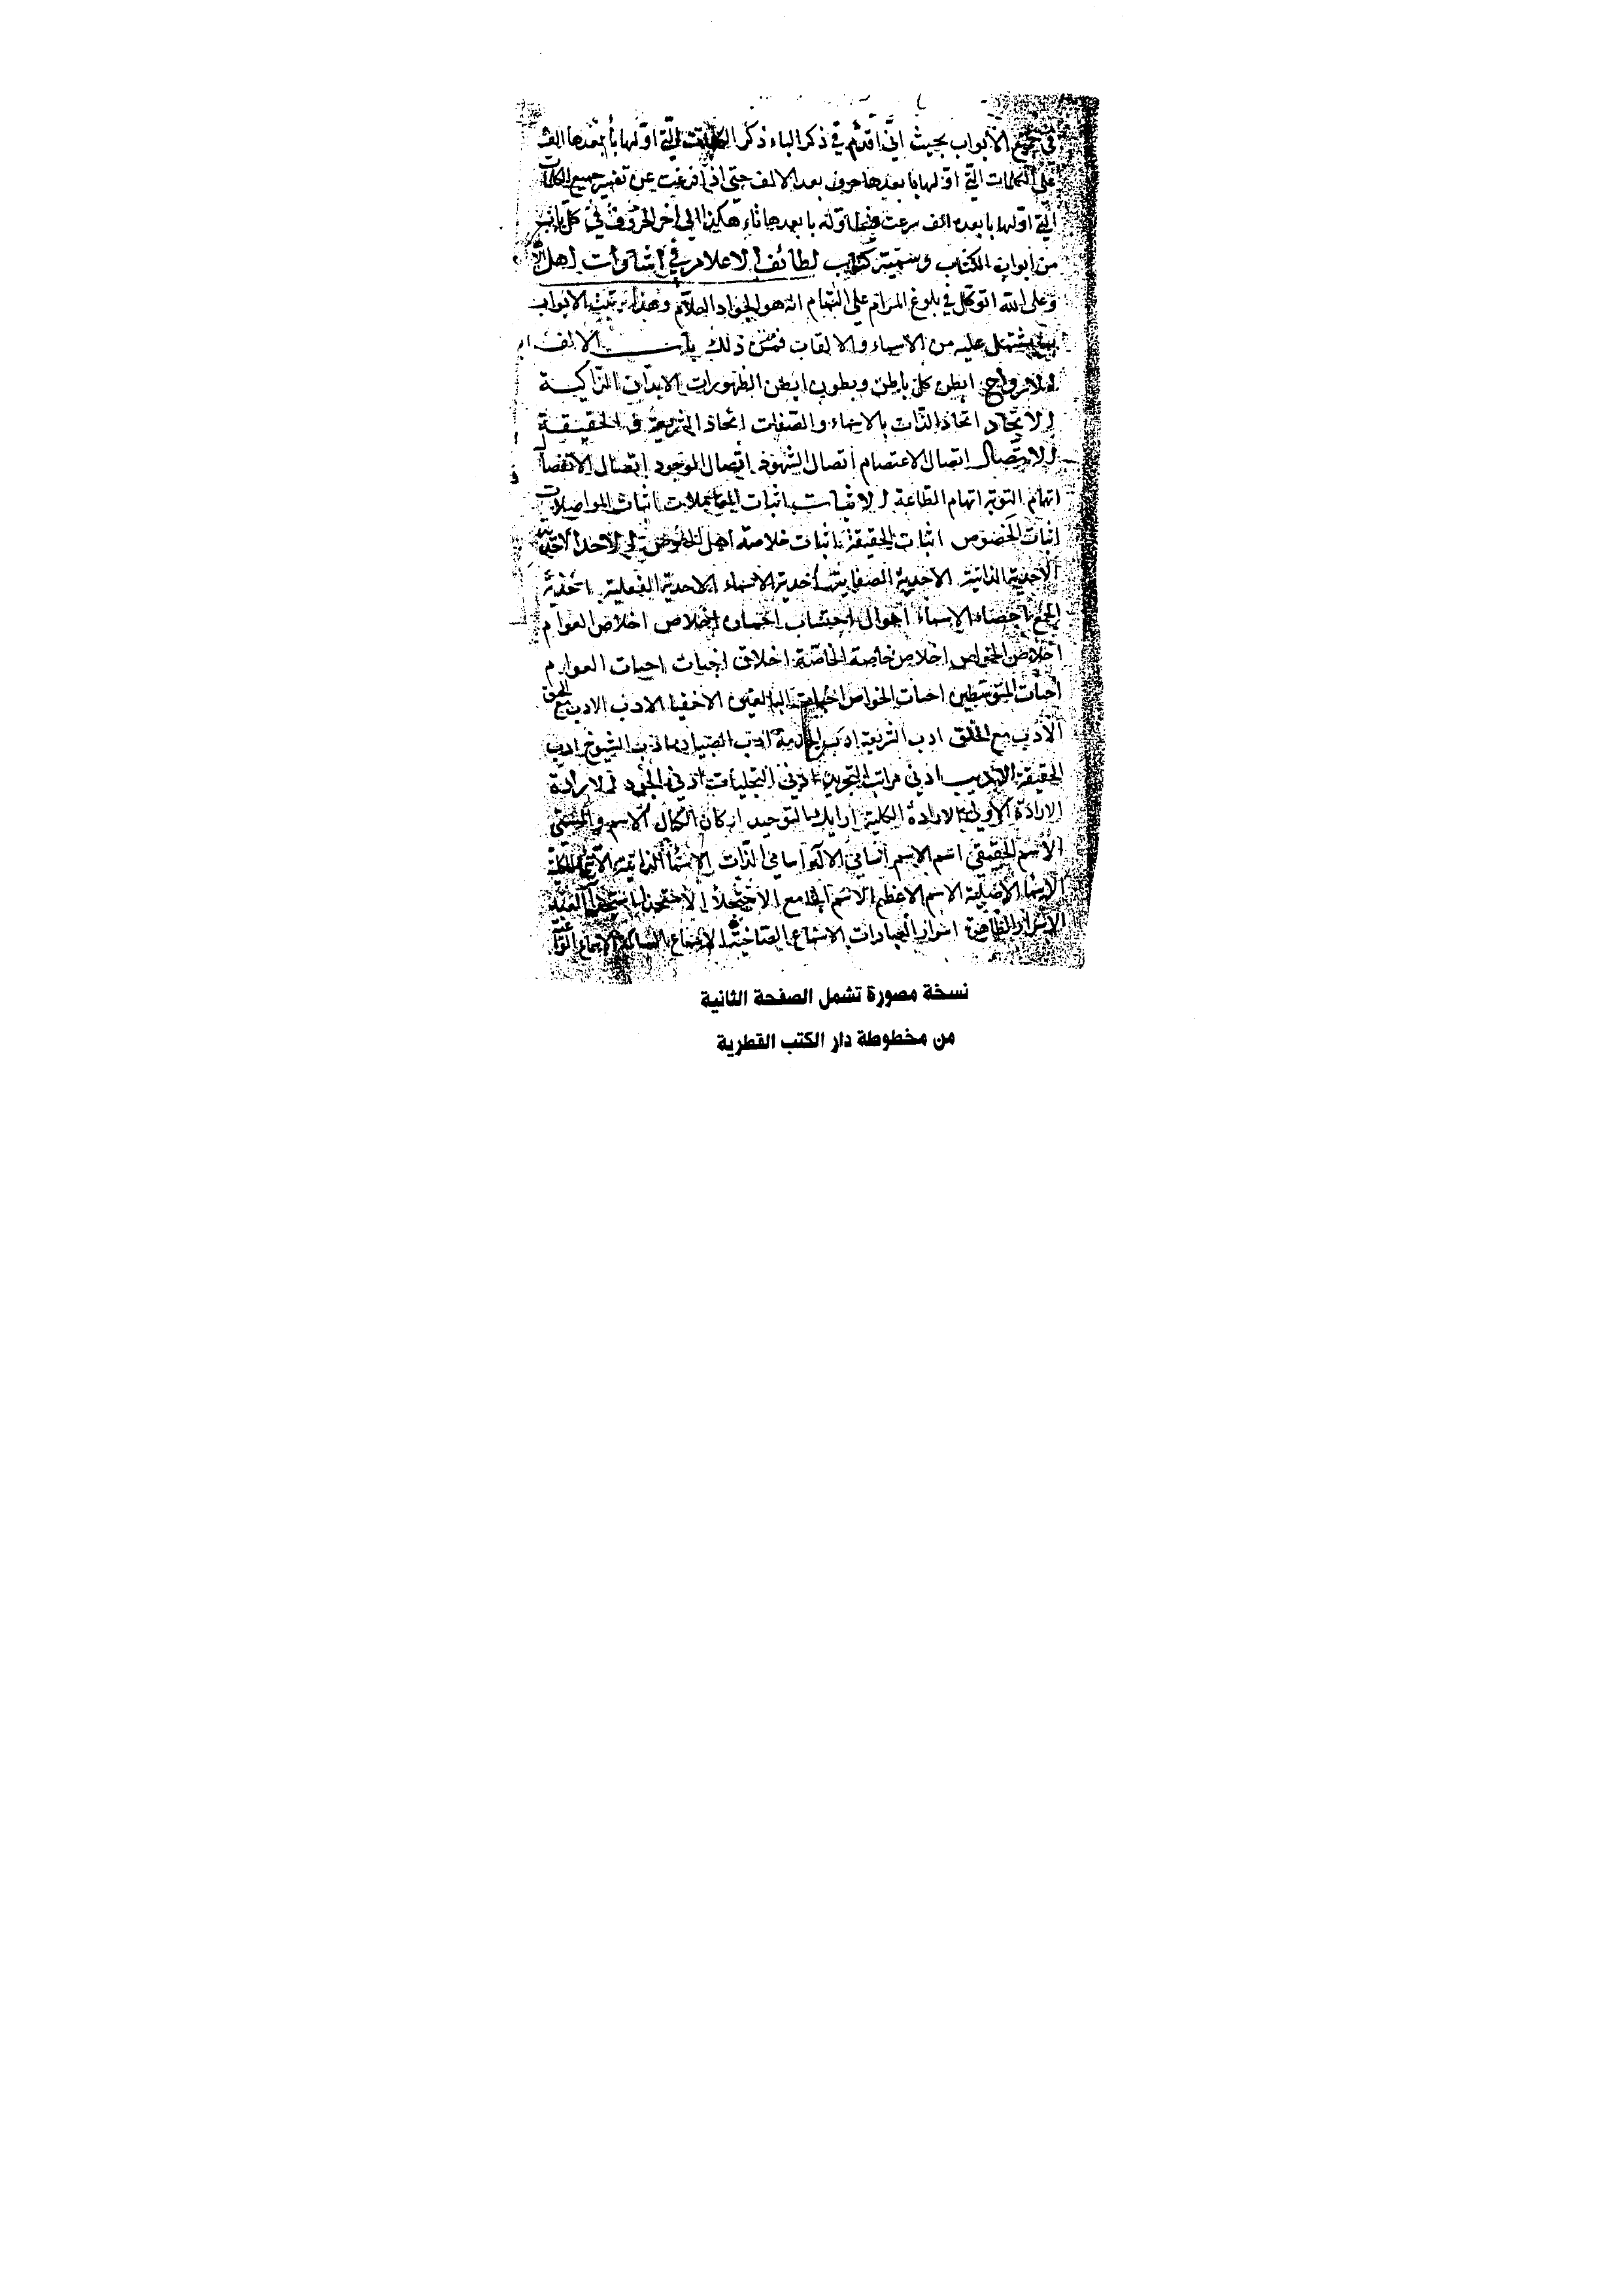 في جميع الأبواب بحيث اني اقدم في ذكر الباء ذكر الكلمات التي اولها با بعدها الف
على الكلمات التي اولها با بعدها حرف بعد الالف حتى اذا فرغت عن تفسير جميع الكلمات
التي اولها با بعده الف شرعت فيما اوله با بعدها تاء هكذا الى اخر الحروف في كل باب
من ابواب الكتاب وسميته كتاب لطائف الاعلام في اشارات اهل
وعلى الله اتوكل في بلوغ المرام على التمام انه هو الجواد العلام وهذا ترتيب الابواب
يشتمل عليه من الاسماء والالقاب فمن ذلك باب الالف
ابطن كل باطن وبطون ابطن الظهورات الابدان الزاكية
الاتحاد اتحاد الذات بالاسماء والصفات اتحاد الشريعة و الحقيقة
الاتصال اتصال الاعتصام اتصال الشهود اتصال الوجود اتصال الانفصال
اتهام التوبة اتهام الطاعة الاثبات اثبات المعاملات اثبات المواصلات
اثبات الخصوص اثبات الحقيقة اثبات خلاصة اهل الخصوص الاحد
الاحدية الذاتية الاحدية الصفاتية احدية الاسماء الاحدية الفعلية احدية
الجمع احصاء الاسماء احوال احتساب احسان اخلاص اخلاص العوام
اخلاص الخواص اخلاص خاصة الخاصة اخلاق اخبات اخبات العوام
اخبات المتوسطين اخبات الخواص اخبات البالغين الاخفيا الادب الادب مع الحق
الادب مع الخلق ادب الشريعة ادب الخدمة ادب الشيوخ ادب
الحقيقة الاديب ادنى مراتب التجريد ادنى التجليات ادنى الارادة
الارادة الاولى الارادة الكلية ارايك التوحيد اركان الكمال الاسم والمسمى
الاسم الحقيقي اسم الاسم اسامي الاله اسامي الذات الاسماء الذاتية
الاسماء الاصلية الاسم الاعظم الاسم الجامع
اسرار العبادات
نسخة مصورة تشمل الصفحة الثانية
من مخطوطة دار الكتب القطرية